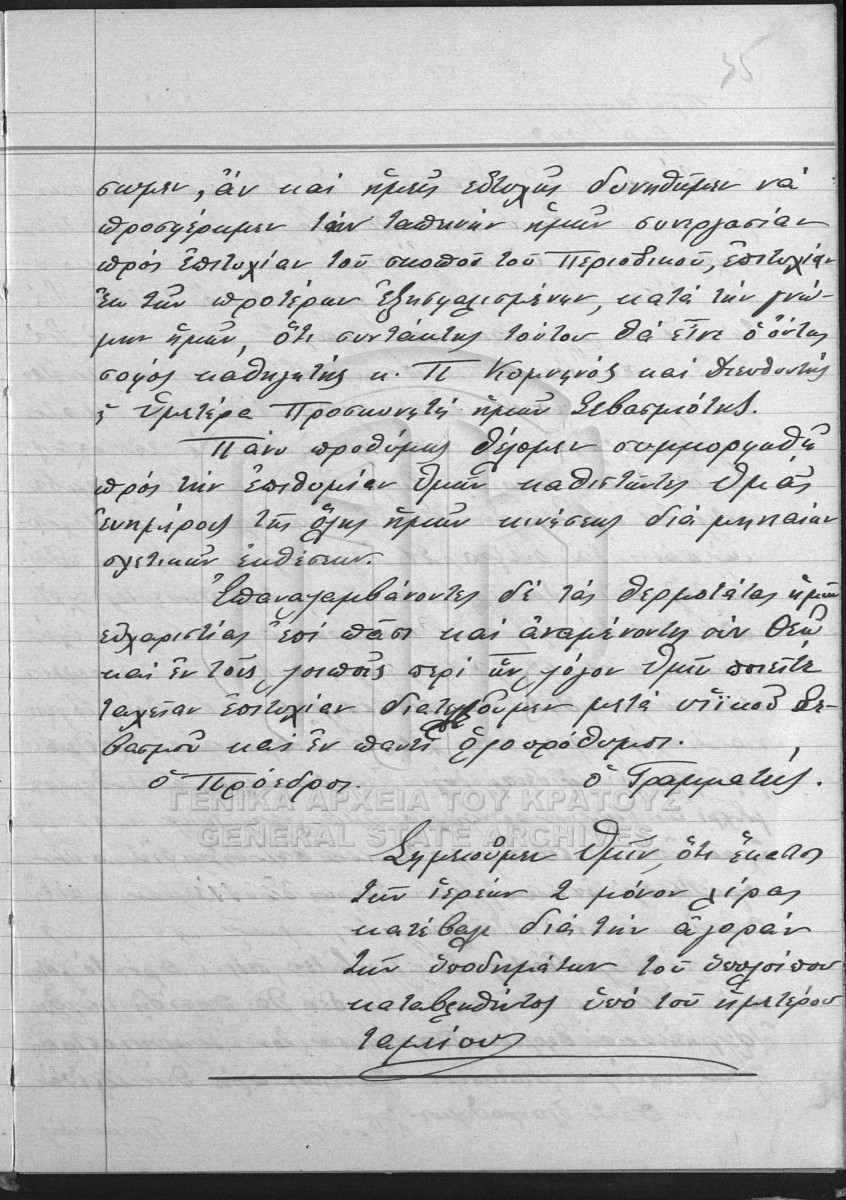 35
σωμεν, ἂν καὶ ἡμεῖς εὐτυχῶς δυνηθῶμεν νὰ
προσφέρωμεν τὴν ταπεινὴν ἡμῶν συνεργασίαν
πρὸς ἐπιτυχίαν τοῦ σκοποῦ τοῦ Περιοδικοῦ, ἐπιτυχίαν
ἐκ τῶν προτέρων ἐξησφαλισμένην, κατὰ τὴν γνώ-
μην ἡμῶν, ὅτι συντάκτης τούτου θὰ εἶνε ὁ ὄντως
σοφὸς καθηγητὴς κ. Π Κομνηνὸς καὶ διευθυντὴς
ἡ Ὑμετέρα Προσκυνητὴ ἡμῖν Σεβασμιότης.
Πάνυ προθύμως θέλομεν συμμορφωθῆ
πρὸς τὴν ἐπιθυμίαν Ὑμῶν καθιστῶντες Ὑμᾶς
ἐνημέρους τῆς ὅλης ἡμῶν κινήσεως διὰ μηνιαίων
σχετικῶν ἐκθέσεων.
Ἐπαναλαμβάνοντες δὲ τὰς θερμοτάτας ἡμῶν
εὐχαριστίας ἐπὶ πᾶσι καὶ ἀναμένοντες σὺν Θεῷ
καὶ ἐν τοῖς λοιποῖς περὶ ὧν λόγον Ὑμῖν ποιεῖτε
ταχεῖαν ἐπιτυχίαν διατελοῦμεν μετὰ υἱϊκοῦ Σε-
βασμοῦ καὶ ἐν παντὶ ὁλοπρόθυμοι.
ὁ Πρόεδρος. ὁ Γραμματεύς.
ΓΕΝΙΚΑ ΑΡΧΕΙΑ ΤΟΥ ΚΡΑΤΟΥΣ
GENERAL STATE ARCHIVES
Σημειοῦμεν Ὑμῖν, ὅτι ἕκαστος
τῶν ἱερέων 2 μόνον λίρας
κατέβαλε διὰ τὴν ἀγορὰν
τῶν ὑποδημάτων τοῦ ὑπολοίπου
καταβληθέντος ὑπὸ τοῦ ἡμετέρου
ταμείου